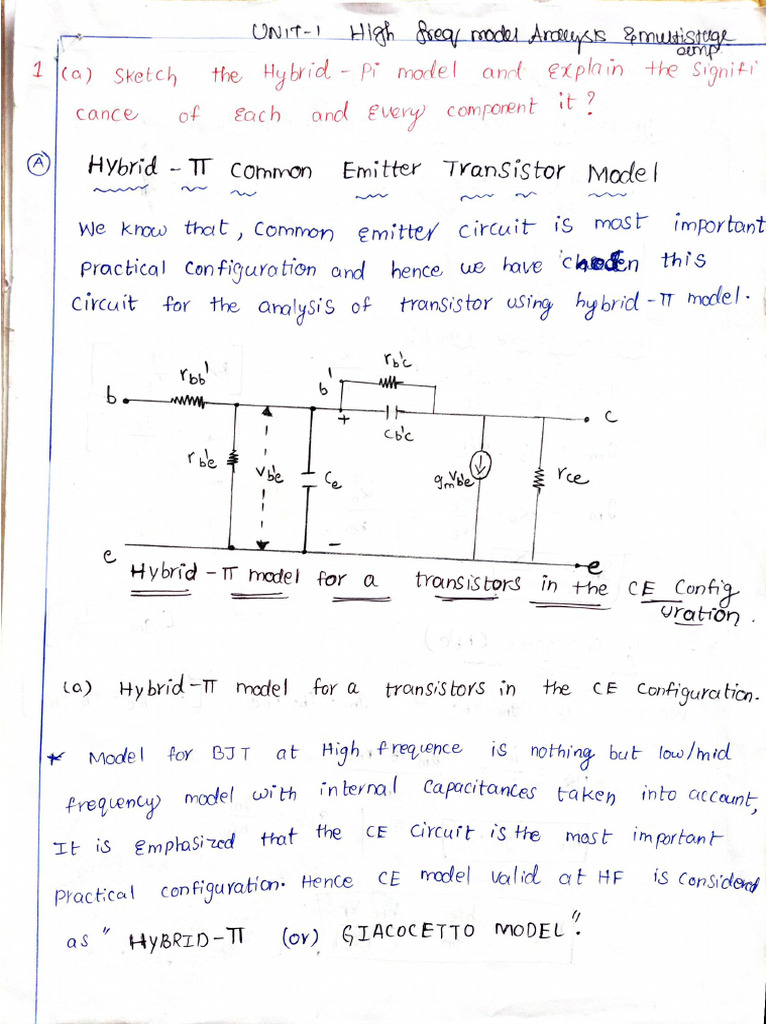 UNIT-1 High freq/ model Analysis & multistage
amp
1 (a) Sketch the Hybrid-Pi model and Explain the Signifi
cance of Each and Every component it?
(A) Hybrid-π Common Emitter Transistor Model
We know that, Common Emitter Circuit is most important
Practical Configuration and hence we have chosen this
Circuit for the analysis of transistor using hybrid-π model.
rb'c
rbb' b'
b c
+ Cb'c
rb'e vb'e Ce gmvb'e rce
e - e
Hybrid-π model for a transistors in the CE Config
uration.
(a) Hybrid-π model for a transistors in the CE Configuration.
* Model for BJT at High frequence is nothing but low/mid
frequency model with internal Capacitances taken into account,
It is Emphasized that the CE Circuit is the most important
Practical configuration. Hence CE model valid at HF is considerd
as "HYBRID-π (or) GIACOCETTO MODEL".